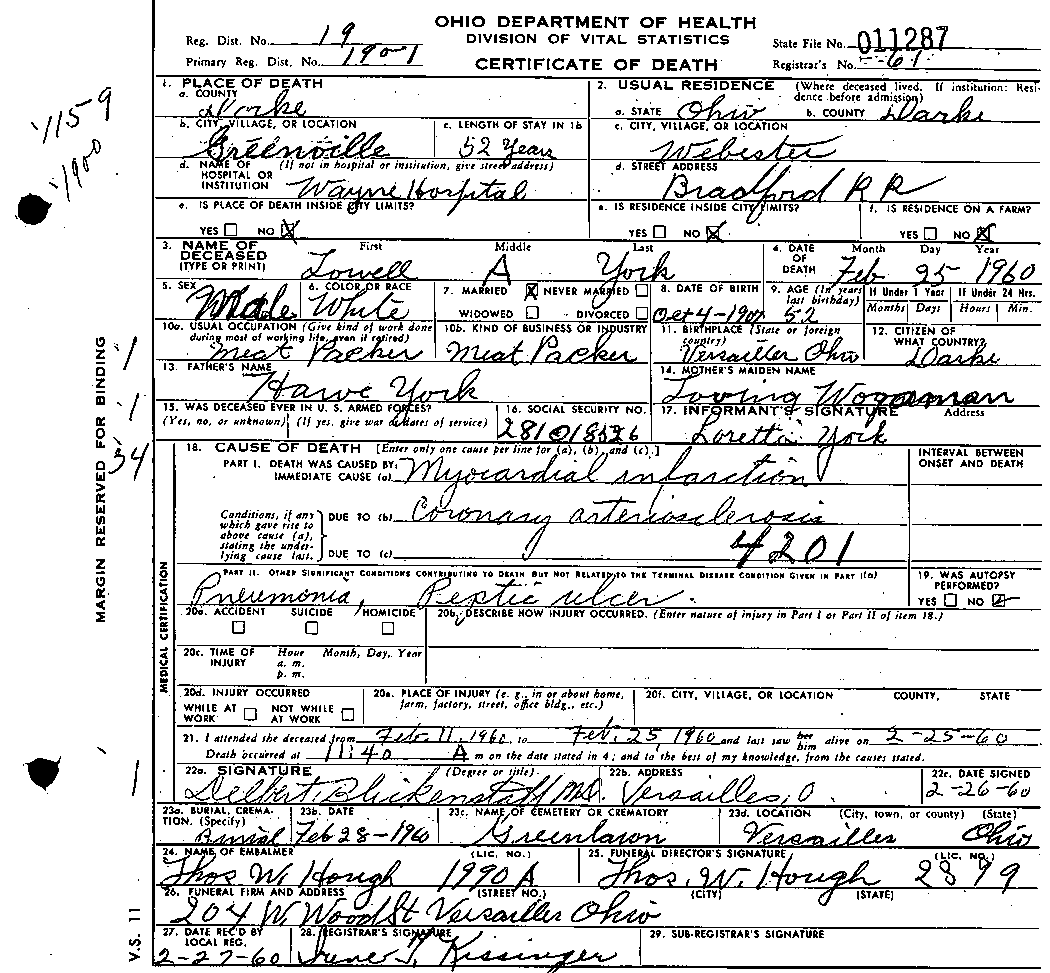 OHIO DEPARTMENT OF HEALTH
DIVISION OF VITAL STATISTICS
CERTIFICATE OF DEATH
Reg. Dist. No. 19
Primary Reg. Dist. No. 1901
State File No. 011287
Registrar's No. 61
1159
1900
1. PLACE OF DEATH
a. COUNTY
Darke
b. CITY, VILLAGE, OR LOCATION
Greenville
c. LENGTH OF STAY IN 1b
52 Years
d. NAME OF HOSPITAL OR INSTITUTION (If not in hospital or institution, give street address)
Wayne Hospital
e. IS PLACE OF DEATH INSIDE CITY LIMITS?
YES NO X
2. USUAL RESIDENCE (Where deceased lived. If institution: Residence before admission)
a. STATE Ohio b. COUNTY Darke
c. CITY, VILLAGE, OR LOCATION
Webester
d. STREET ADDRESS
Bradford R R
e. IS RESIDENCE INSIDE CITY LIMITS?
YES NO X
f. IS RESIDENCE ON A FARM?
YES NO X
3. NAME OF DECEASED (TYPE OR PRINT)
First Middle Last
Lowell A York
4. DATE OF DEATH Month Day Year
Feb 25 1960
5. SEX
Male
6. COLOR OR RACE
White
7. MARRIED X NEVER MARRIED
WIDOWED DIVORCED
8. DATE OF BIRTH
Oct 4-1907
9. AGE (In years last birthday)
52
If Under 1 Year If Under 24 Hrs.
Months Days Hours Min.
10a. USUAL OCCUPATION (Give kind of work done during most of working life, even if retired)
Meat Packer
10b. KIND OF BUSINESS OR INDUSTRY
Meat Packer
11. BIRTHPLACE (State or foreign country)
Versailles Ohio
12. CITIZEN OF WHAT COUNTRY?
Darke
13. FATHER'S NAME
Harve York
14. MOTHER'S MAIDEN NAME
Loving Wogaman
15. WAS DECEASED EVER IN U. S. ARMED FORCES?
(Yes, no, or unknown) (If yes, give war or dates of service)
16. SOCIAL SECURITY NO.
281018526
17. INFORMANT'S SIGNATURE Address
Loretta York
MARGIN RESERVED FOR BINDING
1
1
34
MEDICAL CERTIFICATION
18. CAUSE OF DEATH [Enter only one cause per line for (a), (b), and (c).]
INTERVAL BETWEEN ONSET AND DEATH
PART I. DEATH WAS CAUSED BY:
IMMEDIATE CAUSE (a) Myocardial infarction
Conditions, if any which gave rise to above cause (a), stating the underlying cause last.
DUE TO (b) Coronary arteriosclerosis
4201
DUE TO (c)
PART II. OTHER SIGNIFICANT CONDITIONS CONTRIBUTING TO DEATH BUT NOT RELATED TO THE TERMINAL DISEASE CONDITION GIVEN IN PART I(a)
Pneumonia, Peptic ulcer.
19. WAS AUTOPSY PERFORMED?
YES NO
20a. ACCIDENT SUICIDE HOMICIDE
20b. DESCRIBE HOW INJURY OCCURRED. (Enter nature of injury in Part I or Part II of item 18.)
20c. TIME OF INJURY Hour Month, Day, Year
a. m.
p. m.
20d. INJURY OCCURRED
WHILE AT WORK NOT WHILE AT WORK
20e. PLACE OF INJURY (e. g., in or about home, farm, factory, street, office bldg., etc.)
20f. CITY, VILLAGE, OR LOCATION COUNTY, STATE
21. I attended the deceased from Feb 11, 1960 to Feb. 25 1960 and last saw her him alive on 2-25-60
Death occurred at 11:40 A m on the date stated in 4; and to the best of my knowledge, from the causes stated.
1
22a. SIGNATURE (Degree or title)
Delbert Blickenstaff M.D.
22b. ADDRESS
Versailles, O.
22c. DATE SIGNED
2-26-60
23a. BURIAL, CREMATION. (Specify)
Burial
23b. DATE
Feb 28-1960
23c. NAME OF CEMETERY OR CREMATORY
Greenlawn
23d. LOCATION (City, town, or county) (State)
Versailles Ohio
24. NAME OF EMBALMER (LIC. NO.)
Thos W. Hough 1990 A
25. FUNERAL DIRECTOR'S SIGNATURE (LIC. NO.)
Thos. W. Hough 2899
26. FUNERAL FIRM AND ADDRESS (STREET NO.) (CITY) (STATE)
204 W. Wood St Versailles Ohio
27. DATE REC'D BY LOCAL REG.
2-27-60
28. REGISTRAR'S SIGNATURE
Kissinger
29. SUB-REGISTRAR'S SIGNATURE
V.S. 11